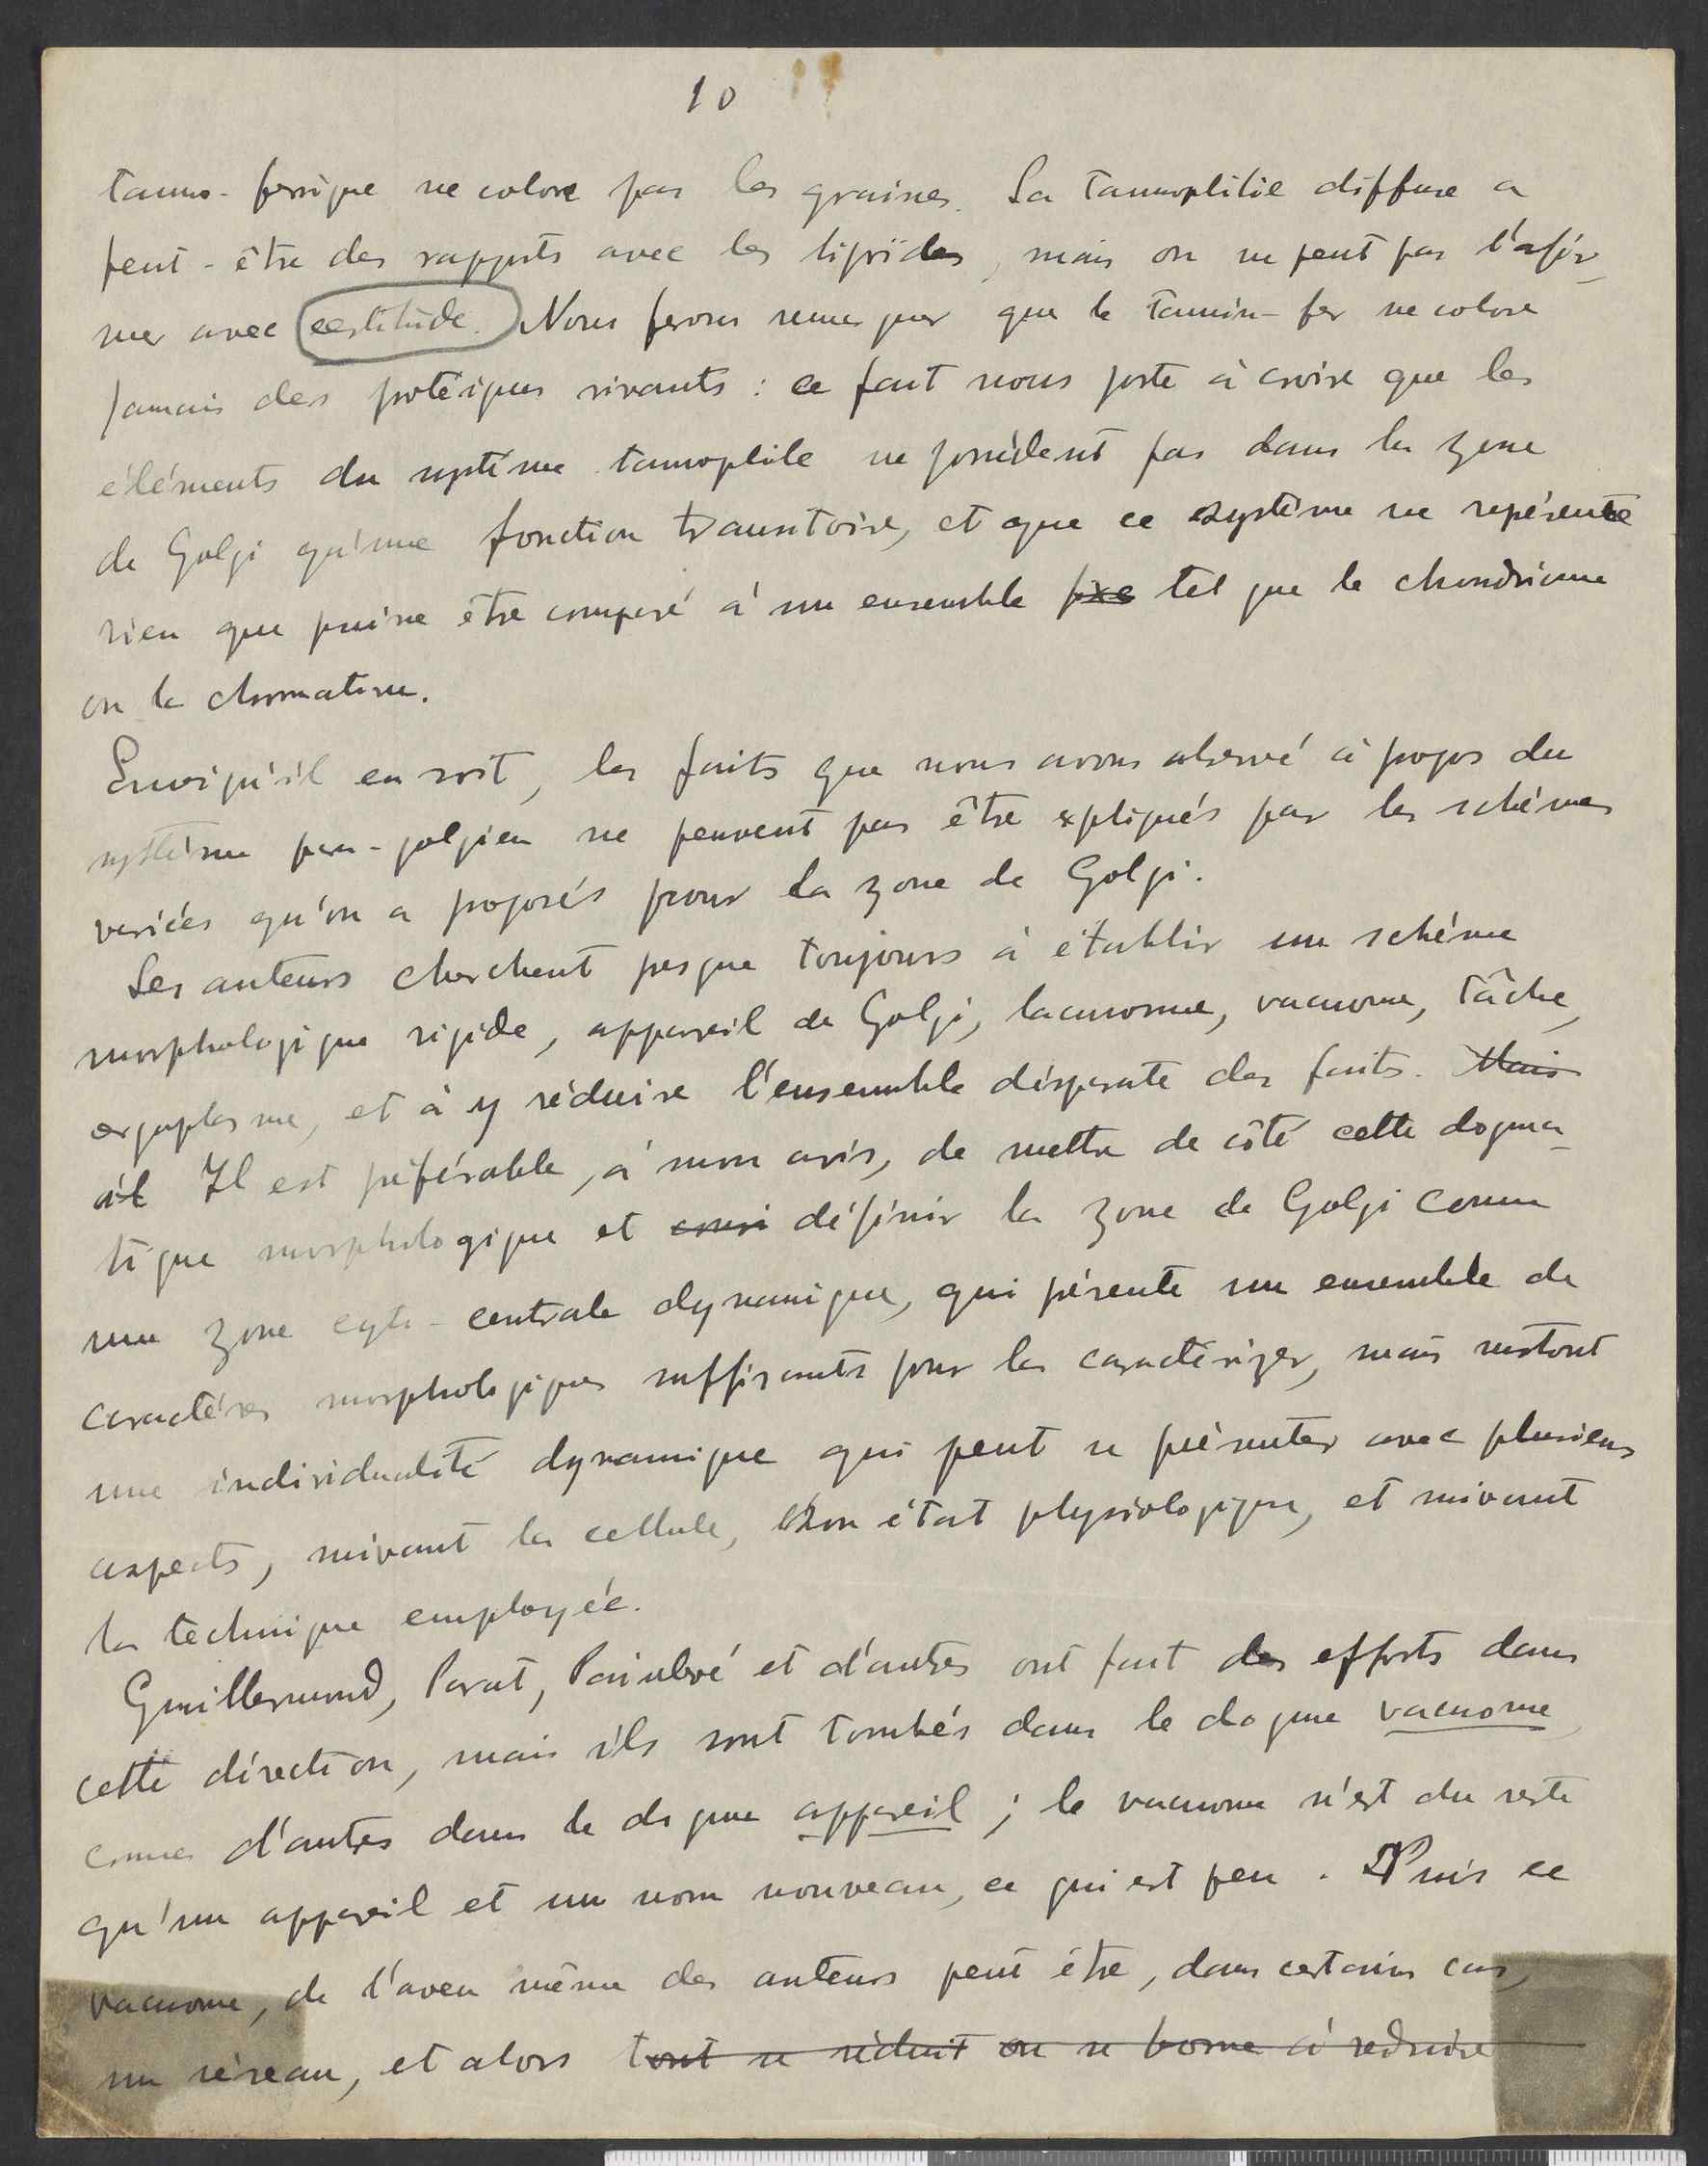 10
tanno-ferrique ne colore pas les graines. La tannophilie diffuse a
peut-être des rapports avec les lipïdes, mais on ne peut pas l'afir-
mer avec certitude. Nous ferons remarquer que le tannin-fer ne colore
jamais des protéiques vivants : ce fait nous porte à croire que les
éléments du système tannophile ne possèdent pas dans la zone
de Golgi qu'une fonction transitoire, et que ce système ne représente
rien que puisse être comparé à un ensemble fixe tel que le chondriome
ou la chromatine.
Quoiqu'il en soit, les faits que nous avons observé à propos du
système para-golgien ne peuvent pas être expliqués par les schémes
variées qu'on a proposés pour la zone de Golgi.
Les auteurs cherchent presque toujours à établir un schéme
morphologique rigide, appareil de Golgi, lacunome, vacuome, tâche,
ergaplasme, et à y réduire l'ensemble désparate des faits. Mais
il Il est préférable, à mon avis, de mettre de côté cette dogma-
tique morphologique et définir la zone de Golgi comme
une zone cyto-centrale dynamique, qui présente un ensemble de
caractères morphologiques suffisants pour la caractériger, mais surtout
une individualité dynamique qui peut se présenter avec plusieurs
aspects, suivant la cellule, son état physiologique, et suivant
la technique employée.
Guilliermond, Parat, Painlevé et d'autres ont fait des efforts dans
cette direction, mais ils sont tombés dans le dogme vacuome,
comme d'autres dans le dogme appareil ; le vacuome n'est du reste
qu'un appareil et un nom nouveau, ce qui est peu. Puis ce
vacuome, de l'aveu même des auteurs peut être, dans certains cas,
un réseau, et alors tout se réduit on se borne à réduire